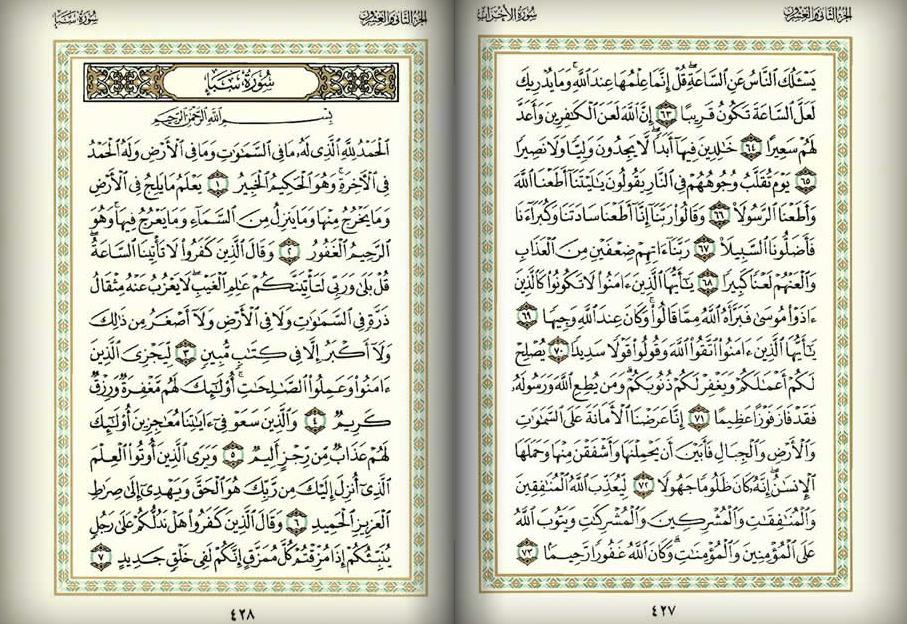 الجزء الثاني والعشرون
سورة الأحزاب
يَسْـَٔلُكَ النَّاسُ عَنِ السَّاعَةِ ۖ قُلْ إِنَّمَا عِلْمُهَا عِندَ اللَّهِ ۚ وَمَا يُدْرِيكَ
لَعَلَّ السَّاعَةَ تَكُونُ قَرِيبًا ٦٣ إِنَّ اللَّهَ لَعَنَ الْكَٰفِرِينَ وَأَعَدَّ
لَهُمْ سَعِيرًا ٦٤ خَٰلِدِينَ فِيهَا أَبَدًا ۖ لَّا يَجِدُونَ وَلِيًّا وَلَا نَصِيرًا
٦٥ يَوْمَ تُقَلَّبُ وُجُوهُهُمْ فِي النَّارِ يَقُولُونَ يَٰلَيْتَنَا أَطَعْنَا اللَّهَ
وَأَطَعْنَا الرَّسُولَا۠ ٦٦ وَقَالُوا رَبَّنَا إِنَّا أَطَعْنَا سَادَتَنَا وَكُبَرَآءَنَا
فَأَضَلُّونَا السَّبِيلَا۠ ٦٧ رَبَّنَآ ءَاتِهِمْ ضِعْفَيْنِ مِنَ الْعَذَابِ
وَالْعَنْهُمْ لَعْنًا كَبِيرًا ٦٨ يَٰٓأَيُّهَا الَّذِينَ ءَامَنُوا لَا تَكُونُوا كَالَّذِينَ
ءَاذَوْا مُوسَىٰ فَبَرَّأَهُ اللَّهُ مِمَّا قَالُوا ۚ وَكَانَ عِندَ اللَّهِ وَجِيهًا ٦٩
يَٰٓأَيُّهَا الَّذِينَ ءَامَنُوا اتَّقُوا اللَّهَ وَقُولُوا قَوْلًا سَدِيدًا ٧٠ يُصْلِحْ
لَكُمْ أَعْمَٰلَكُمْ وَيَغْفِرْ لَكُمْ ذُنُوبَكُمْ ۗ وَمَن يُطِعِ اللَّهَ وَرَسُولَهُ
فَقَدْ فَازَ فَوْزًا عَظِيمًا ٧١ إِنَّا عَرَضْنَا الْأَمَانَةَ عَلَى السَّمَٰوَٰتِ
وَالْأَرْضِ وَالْجِبَالِ فَأَبَيْنَ أَن يَحْمِلْنَهَا وَأَشْفَقْنَ مِنْهَا وَحَمَلَهَا
الْإِنسَٰنُ ۖ إِنَّهُ كَانَ ظَلُومًا جَهُولًا ٧٢ لِّيُعَذِّبَ اللَّهُ الْمُنَٰفِقِينَ
وَالْمُنَٰفِقَٰتِ وَالْمُشْرِكِينَ وَالْمُشْرِكَٰتِ وَيَتُوبَ اللَّهُ
عَلَى الْمُؤْمِنِينَ وَالْمُؤْمِنَٰتِ ۗ وَكَانَ اللَّهُ غَفُورًا رَّحِيمًا ٧٣
٤٢٧
الجزء الثاني والعشرون
سورة سبإ
سورة سبإ
بِسْمِ اللَّهِ الرَّحْمَٰنِ الرَّحِيمِ
الْحَمْدُ لِلَّهِ الَّذِي لَهُ مَا فِي السَّمَٰوَٰتِ وَمَا فِي الْأَرْضِ وَلَهُ الْحَمْدُ
فِي الْءَاخِرَةِ ۚ وَهُوَ الْحَكِيمُ الْخَبِيرُ ١ يَعْلَمُ مَا يَلِجُ فِي الْأَرْضِ
وَمَا يَخْرُجُ مِنْهَا وَمَا يَنزِلُ مِنَ السَّمَآءِ وَمَا يَعْرُجُ فِيهَا ۚ وَهُوَ
الرَّحِيمُ الْغَفُورُ ٢ وَقَالَ الَّذِينَ كَفَرُوا لَا تَأْتِينَا السَّاعَةُ ۖ
قُلْ بَلَىٰ وَرَبِّي لَتَأْتِيَنَّكُمْ عَٰلِمِ الْغَيْبِ ۖ لَا يَعْزُبُ عَنْهُ مِثْقَالُ
ذَرَّةٍ فِي السَّمَٰوَٰتِ وَلَا فِي الْأَرْضِ وَلَآ أَصْغَرُ مِن ذَٰلِكَ
وَلَآ أَكْبَرُ إِلَّا فِي كِتَٰبٍ مُّبِينٍ ٣ لِّيَجْزِيَ الَّذِينَ
ءَامَنُوا وَعَمِلُوا الصَّٰلِحَٰتِ ۚ أُولَٰٓئِكَ لَهُم مَّغْفِرَةٌ وَرِزْقٌ
كَرِيمٌ ٤ وَالَّذِينَ سَعَوْ فِيٓ ءَايَٰتِنَا مُعَٰجِزِينَ أُولَٰٓئِكَ
لَهُمْ عَذَابٌ مِّن رِّجْزٍ أَلِيمٌ ٥ وَيَرَى الَّذِينَ أُوتُوا الْعِلْمَ
الَّذِيٓ أُنزِلَ إِلَيْكَ مِن رَّبِّكَ هُوَ الْحَقَّ وَيَهْدِيٓ إِلَىٰ صِرَٰطِ
الْعَزِيزِ الْحَمِيدِ ٦ وَقَالَ الَّذِينَ كَفَرُوا هَلْ نَدُلُّكُمْ عَلَىٰ رَجُلٍ
يُنَبِّئُكُمْ إِذَا مُزِّقْتُمْ كُلَّ مُمَزَّقٍ إِنَّكُمْ لَفِي خَلْقٍ جَدِيدٍ ٧
٤٢٨